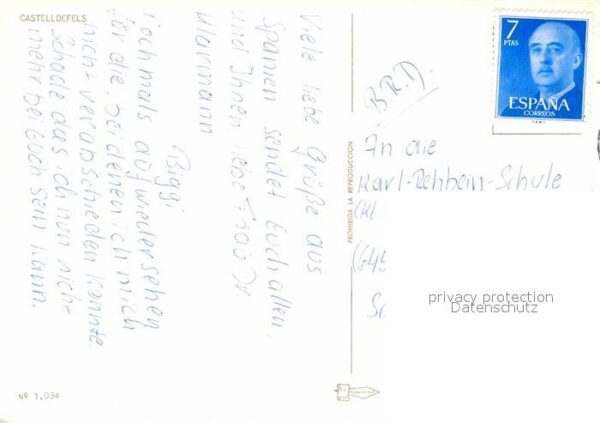 CASTELLDEFELS
Viele liebe Grüße aus
Spanien sendet Euch allen,
und Ihnen liebe Frau Dr
Marmann
Biggi
Nochmals auf wiedersehen
für die, bei denen ich mich
nicht verabschieden konnte.
Schade das ich nun nicht
mehr bei Euch sein kann.
Nº 1.034
PROHIBIDA LA REPRODUCCION
7
PTAS
ESPAÑA
CORREOS
B.R.D.
An die
Karl-Rehbein-Schule
(Kl.
(645
privacy protection
Datenschutz